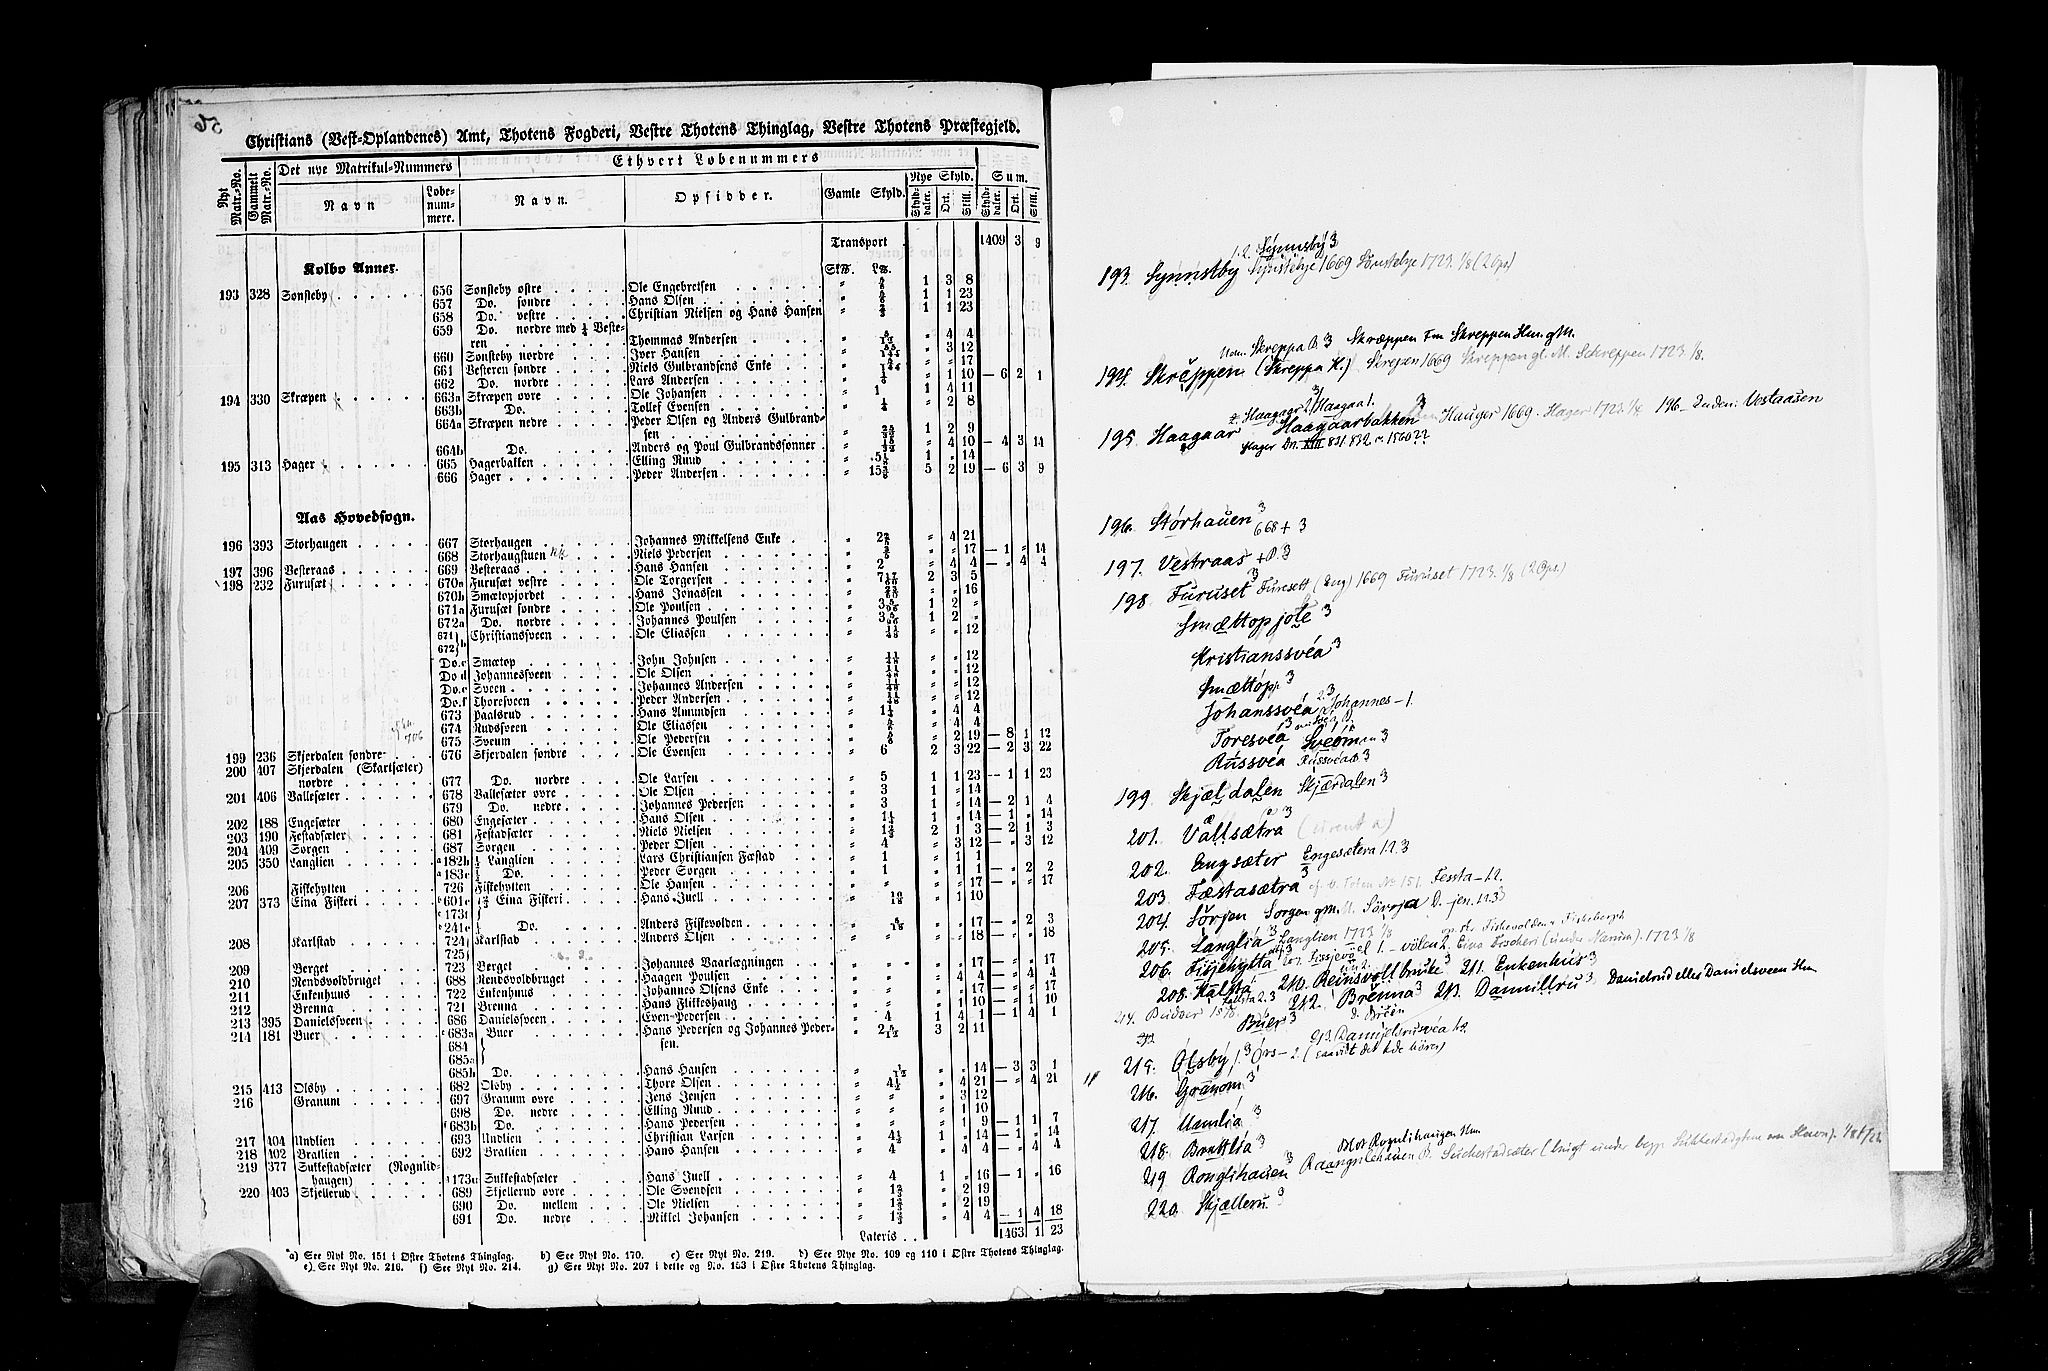 56
Christians (Vest-Oplandenes) Amt, Thotens Fogderi, Vestre Thotens Thinglag, Vestre Thotens Præstegjeld.
Nyt Matr.-No. Gammelt Matr.-No. Det nye Matrikul-Nummers Ethvert Løbenummers
Navn Løbenummere. Navn. Opsidder. Gamle Skyld. Nye Skyld. Sum.
Skylddaler. Ort. Skill. Skylddaler. Ort. Skill.
Transport 1409 3 9
Kolbo Annex.
193 328 Sønsteby 656 Sønsteby østre Ole Engebretsen 1 3 8
657 Do. søndre Hans Olsen 1 1 23
658 Do. vestre Christian Nielsen og Hans Hansen 1 1 23
659 Do. nordre med ¼ Vesteren Thommas Andersen " 4 4
660 Sønsteby nordre Iver Hansen " 3 12
661 Vesteren søndre Niels Gulbrandsens Enke " " 17
662 Do. nordre Lars Andersen " 1 10 — 6 2 1
194 330 Skræpen 663a Skræpen øvre Ole Johansen 1 1 4 11
663b Do. Tollef Evensen " 2 8
664a Skræpen nedre Peder Olsen og Anders Gulbrandsen 1 2 9
664b Do. Anders og Poul Gulbrandsønner " 4 10 — 4 3 14
195 313 Hager 665 Hagerbakken Elling Ruud 1 " 14
666 Hager Peder Andersen 5 2 19 — 6 3 9
Aas Hovedsogn.
196 393 Storhaugen 667 Storhaugen Johannes Mikkelsens Enke " 4 21
668 Storhaugstuen Niels Pedersen " " 17 — 1 " 14
197 396 Vesteraas 669 Vesteraas Hans Hansen 2 " 4 4 — " 4 4
198 232 Furusæt 670a Furusæt vestre Ole Torgersen 2 3 5
670b Smætopjordet Hans Jonassen " " 16
671a Furusæt søndre Ole Poulsen 1 2 "
672a Do. nordre Johannes Poulsen 1 2 "
671 672 b Christiansveen Ole Eliassen " " 12
Do. c Smætop John Johnsen " " 12
Do d Johannesveen Ole Olsen " " 12
Do. e Sveen Johannes Andersen " " 12
Do. f Thoresveen Peder Andersen " " 12
673 Paalsrud Hans Amundsen " 4 4
674 Rudsveen Ole Eliassen " 4 4
675 Sveum Ole Pedersen " 2 19 — 8 1 12
199 236 Skjerdalen søndre 676 Skjerdalen søndre Ole Evensen 6 2 3 22 — 2 3 22
200 407 Skjerdalen (Skartsæter) nordre 677 Do. nordre Ole Larsen 5 1 1 23 — 1 1 23
201 406 Vallesæter 678 Vallesæter øvre Ole Olsen 3 1 " 14
679 Do. nedre Johannes Pedersen 3 1 " 14 — 2 1 4
202 188 Engesæter 680 Engesæter Hans Olsen 1 " 14 — 1 " 14
203 190 Festadsæter 681 Festadsæter Niels Nielsen 2 1 3 — 2 1 3
204 409 Sorgen 687 Sorgen Peder Olsen 4 " 3 12 — " 3 12
205 350 Langlien a 182b ½ Langlien Lars Christiansen Fæstad 1 " 1 1
a 183c ½ Do. Peder Sorgen 1 " 1 1 — " 2 2
206 Fiskehytten 726 Fiskehytten Ole Hansen " " 17 — " " 17
207 373 Eina Fiskeri 601c Eina Fiskeri Hans Juell " 1 10
173t
241c Do. Anders Fiskevolden " " 17 — " 2 3
208 Karlstad 724 725 Karlstad Anders Olsen " " 18 — " " 18
209 Berget 723 Berget Johannes Vaarlægningen " " 17 — " " 17
210 Rendsvoldbruget 688 Rendsvoldbruget Haagen Poulsen " 4 4 — " 4 4
211 Enkenhuus 722 Enkenhuus Johannes Olsens Enke " " 17 — " " 17
212 Brenna 721 Brenna Hans Flikkeshaug " 1 10 — " 1 10
213 395 Danielsveen 686 Danielsveen Even Pedersen 4 1 4 1 — 1 4 1
214 181 Buer 683a 684 685a Buer Hans Pedersen og Johannes Pedersen. 3 2 11
685b Do. Hans Hansen " " 14 — 3 3 1
215 413 Olsby 682 Olsby Thore Olsen 4½ " 4 21 — " 4 21
216 Granum 697 Granum øvre Jens Jensen " 3 12
698 Do. nedre Elling Ruud " 1 10
683b Do. Hans Pedersen " 1 9 — 1 1 7
217 404 Undlien 693 Undlien Christian Larsen 4½ 1 " 14 — 1 " 14
218 402 Bratlien 692 Bratlien Hans Hansen 4 " 4 4 — " 4 4
219 377 Sukkestadsæter (Rognlidhaugen) 173u Sukkestadsæter Hans Juell 4 1 " 16 — 1 " 16
220 403 Skjellerud 689 Skjellerud øvre Ole Svendsen " 2 19
690 Do. mellem Ole Nielsen " 2 19
691 Do. nedre Mikkel Johansen " 4 4 — 1 4 18
Lateris 1463 1 23
a) See Nyt No. 151 i Østre Thotens Thinglag. b) See Nyt No. 170. c) See Nyt No. 219. d) See Nye No. 109 og 110 i Østre Thotens Thinglag.
e) See Nyt No. 216. f) See Nyt No. 214. g) See Nyt No. 207 i dette og No. 153 i Østre Thotens Thinglag.
1.2. Synnsby 3
193. Synnstby Synstebye 1669 Sönstebye 1723. 1/8 (2 Gpr.)
Skreppa D. 3 Skræppen Fm Skreppen Hm. gM.
194. Skreppen (Skreppa K.) Skrepen 1669 Skreppen gl. M. Schreppen 1723 1/8.
Haagaar 2 Haagaa 1.
195. Haagaar Haagaarbakken 3 Hauger 1669. Hager 1723. 1/4 196 - Enden: Vestaasen
Hager Dn. XIII 831. 832 1560 ??
196. Storhauen 3
668 + 3
197. Vestraas + D. 3
198 Furuset 3 Furesett 1669 Furuset 1723. 1/8 (2 Gpr.)
Smættopjote 3
Kristianssvéa 3
Smættopp 3
Johanssvéa 2.3 Johannes - 1.
Toresvéa 3 Sveom
Russvéa Russvéa D. 3
199. Skjæl dalen Skjærdalen 3
201. Vallsætra 3 (urent a)
202. Engsæter Engesætera 1.2. 3
203. Fæstasætra 3 cf. Ø. Toten No 151. Festa - 1.2.
204. Sörjen Sorgen gm. M. Sörrja D. - jen. 1.2. 3
205. Langlia 3 Langlien 1723 1/8
206. Fisjehytta 3 207. Fissjevöl 1. - völen 2. Eina Fischeri (under Narum). 1723 1/8
208. Kalsta 210. Reinsvollbruke 3 211. Enkenhus 3
212. Brenna 3 213. Dannillru 3 Danielrud eller Danielsveen Hm
214. Budoer 1578. Buer 3
213. Danijelsrusvéa 1.2.
215. Olsby 1. 3 Ors - 2. (saavidt det kde höres)
216. Granom 3
217. Unnlia 3
218. Brattlia 3
219 Ronglihauen 3 Raangslehauen D. Suckestadsæter
220. Skjælleru 3